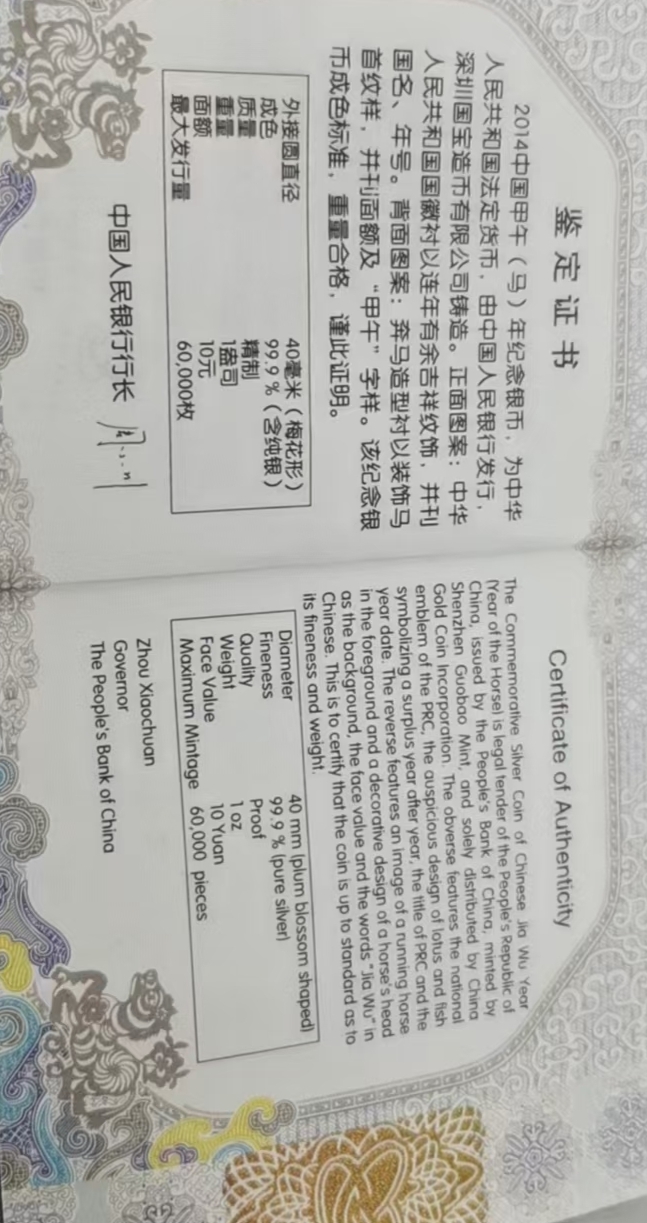 鉴定证书
2014中国甲午（马）年纪念银币，为中华
人民共和国法定货币，由中国人民银行发行，
深圳国宝造币有限公司铸造。正面图案：中华
人民共和国国徽衬以连年有余吉祥纹饰，并刊
国名、年号。背面图案：奔马造型衬以装饰马
首纹样，并刊面额及“甲午”字样。该纪念银
币成色标准，重量合格，谨此证明。
外接圆直径 40毫米（梅花形）
成色 99.9%（含纯银）
质量 精制
重量 1盎司
面额 10元
最大发行量 60,000枚
中国人民银行行长
Certificate of Authenticity
The Commemorative Silver Coin of Chinese Jia Wu Year
(Year of the Horse) is legal tender of the People's Republic of
China, issued by the People's Bank of China, minted by
Shenzhen Guobao Mint, and solely distributed by China
Gold Coin Incorporation. The obverse features the national
emblem of the PRC, the auspicious design of lotus and fish
symbolizing a surplus year after year, the title of PRC and the
year date. The reverse features an image of a running horse
in the foreground and a decorative design of a horse's head
as the background, the face value and the words "Jia Wu" in
Chinese. This is to certify that the coin is up to standard as to
its fineness and weight.
Diameter 40 mm (plum blossom shaped)
Fineness 99.9 % (pure silver)
Quality Proof
Weight 1 oz
Face Value 10 Yuan
Maximum Mintage 60,000 pieces
Zhou Xiaochuan
Governor
The People's Bank of China